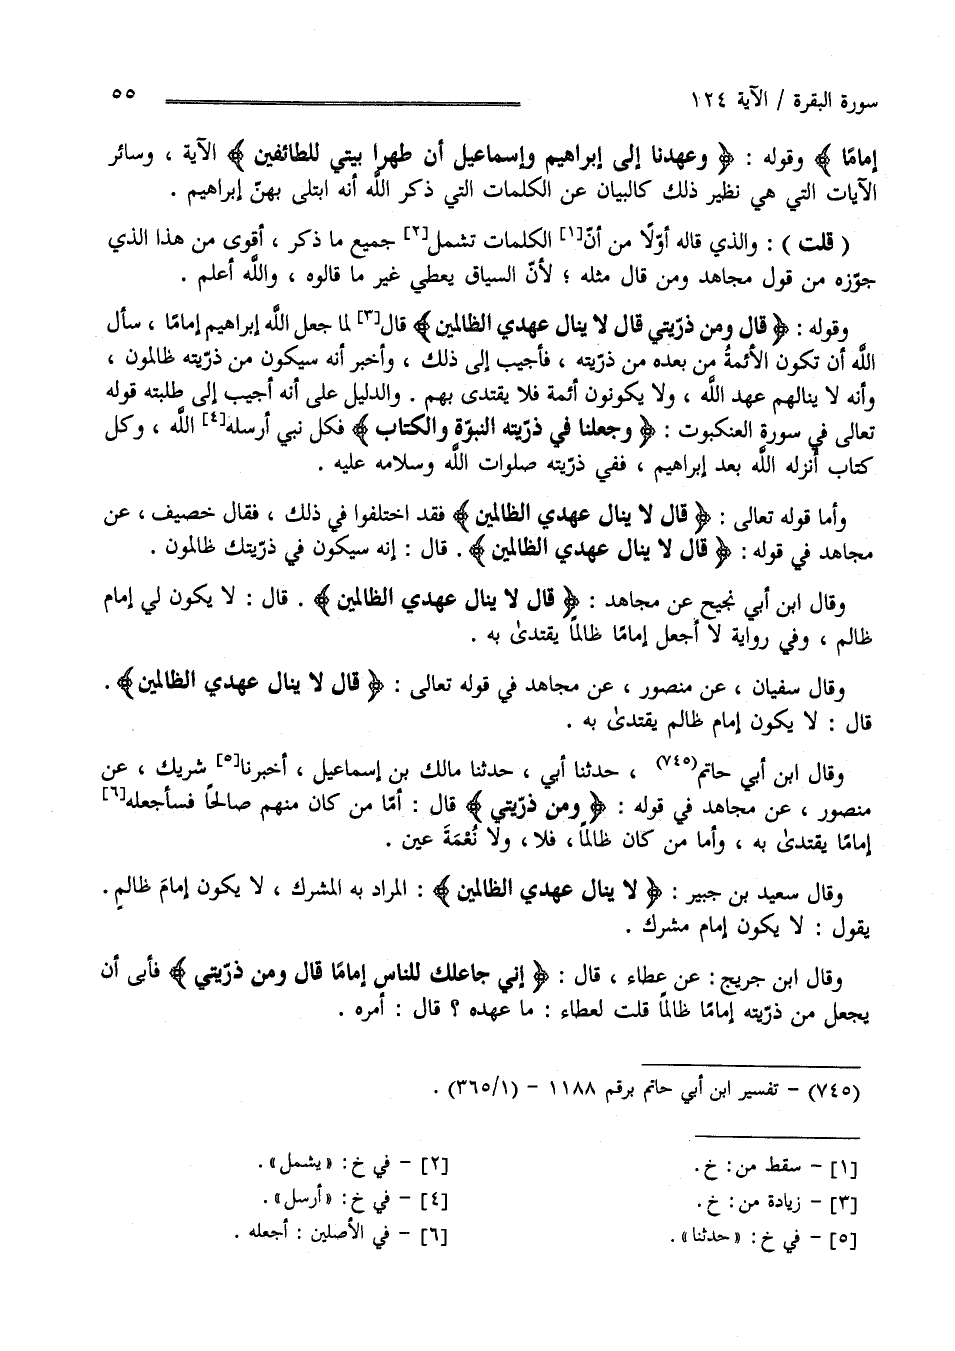 سورة البقرة / الآية ١٢٤ ٥٥
إمامًا ﴾ وقوله : ﴿ وعهدنا إلى إبراهيم وإسماعيل أن طهرا بيتي للطائفين ﴾ الآية ، وسائر
الآيات التي هي نظير ذلك كالبيان عن الكلمات التي ذكر اللَّه أنه ابتلى بهنّ إبراهيم .
( قلت ) : والذي قاله أوّلًا من أنّ[١] الكلمات تشمل[٢] جميع ما ذكر ، أقوى من هذا الذي
جوّزه من قول مجاهد ومن قال مثله ؛ لأنّ السياق يعطي غير ما قالوه ، واللَّه أعلم .
وقوله : ﴿ قال ومن ذرّيتي قال لا ينال عهدي الظالمين ﴾ قال[٣] لما جعل اللَّه إبراهيم إمامًا ، سأل
اللَّه أن تكون الأئمةُ من بعده من ذرّيته ، فأجيب إلى ذلك ، وأخبر أنه سيكون من ذرّيته ظالمون ،
وأنه لا ينالهم عهد اللَّه ، ولا يكونون أئمة فلا يقتدى بهم . والدليل على أنه أجيب إلى طلبته قوله
تعالى في سورة العنكبوت : ﴿ وجعلنا في ذرّيته النبوّة والكتاب ﴾ فكل نبي أرسله[٤] اللَّه ، وكل
كتاب أنزله اللَّه بعد إبراهيم ، ففي ذرّيته صلوات اللَّه وسلامه عليه .
وأما قوله تعالى : ﴿ قال لا ينال عهدي الظالمين ﴾ فقد اختلفوا في ذلك ، فقال خصيف ، عن
مجاهد في قوله : ﴿ قال لا ينال عهدي الظالمين ﴾ . قال : إنه سيكون في ذرّيتك ظالمون .
وقال ابن أبي نجيح عن مجاهد : ﴿ قال لا ينال عهدي الظالمين ﴾ . قال : لا يكون لي إمام
ظالم ، وفي رواية لا أجعل إمامًا ظالمًا يقتدىٰ به .
وقال سفيان ، عن منصور ، عن مجاهد في قوله تعالى : ﴿ قال لا ينال عهدي الظالمين ﴾ .
قال : لا يكون إمام ظالم يقتدىٰ به .
وقال ابن أبي حاتم(٧٤٥) ، حدثنا أبي ، حدثنا مالك بن إسماعيل ، أخبرنا[٥] شريك ، عن
منصور ، عن مجاهد في قوله : ﴿ ومن ذرّيتي ﴾ قال : أمّا من كان منهم صالحًا فسأجعله[٦]
إمامًا يقتدىٰ به ، وأما من كان ظالمًا ، فلا ، ولا نُعْمَةَ عين .
وقال سعيد بن جبير : ﴿ لا ينال عهدي الظالمين ﴾ : المراد به المشرك ، لا يكون إمامَ ظالمٍ .
يقول : لا يكون إمام مشرك .
وقال ابن جريج : عن عطاء ، قال : ﴿ إني جاعلك للناس إمامًا قال ومن ذرّيتي ﴾ فأبى أن
يجعل من ذرّيته إمامًا ظالمًا قلت لعطاء : ما عهده ؟ قال : أمره .
(٧٤٥) - تفسير ابن أبي حاتم برقم ١١٨٨ - (٣٦٥/١) .
[١] - سقط من: خ. [٢] - في خ: «يشمل».
[٣] - زيادة من: خ. [٤] - في خ: «أرسل».
[٥] - في خ: «حدثنا». [٦] - في الأصلين : أجعله .